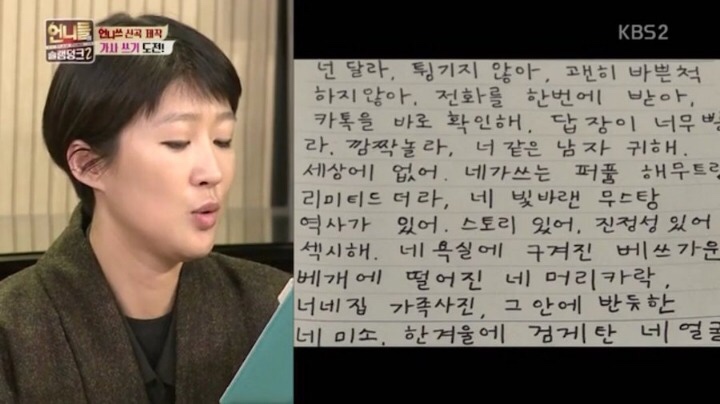 언니들의
슬램덩크2
언니쓰 신곡 제작
가사 쓰기 도전!
KBS2
넌 달라, 튕기지 않아, 괜히 바쁜척
하지않아. 전화를 한번에 받아,
카톡을 바로 확인해. 답장이 너무
라. 깜짝놀라, 너 같은 남자 귀해.
세상에 없어. 네가쓰는 퍼퓸 해무트랑
리미티드더라, 네 빛바랜 무스탕
역사가 있어. 스토리 있어, 진정성 있어
섹시해. 네 욕실에 구겨진 베쓰가운
베개에 떨어진 네 머리카락,
너네집 가족사진, 그 안에 반듯한
네 미소. 한겨울에 검게 탄 네